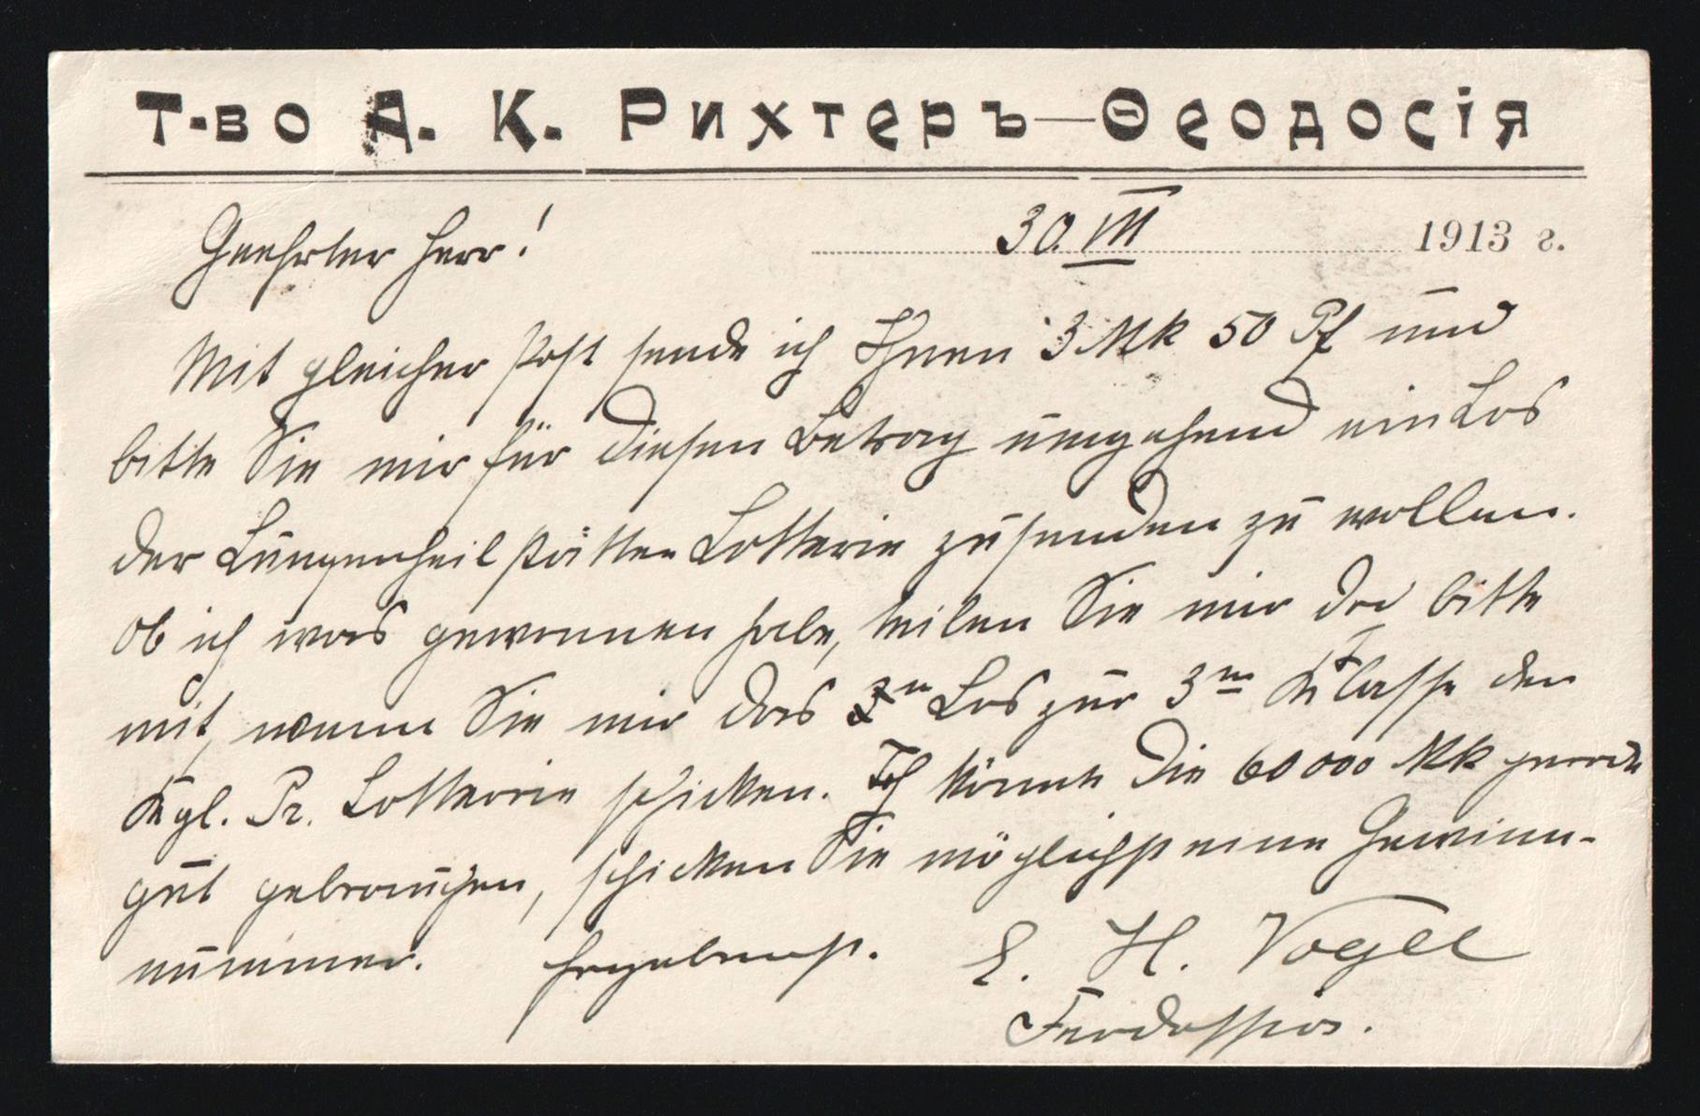 Т-во А. К. Рихтеръ—Ѳеодосія
30. VIII 1913 г.
Geehrter Herr!
Mit gleicher Post sende ich Ihnen 3 Mk 50 Pf und
bitte Sie mir für diesen Betrag umgehend ein Los
der Lungenheilstätten Lotterie zusenden zu wollen.
Ob ich was gewonnen habe, teilen Sie mir bitte
mit, wenn Sie mir das Los zur 3ten Klasse der
Kgl. Pr. Lotterie schicken. Ich könnte die 60000 Mk gerade
gut gebrauchen, schicken Sie möglichst eine Gewinn-
nummer. Ergebenst. E. H. Vogel
Feodossia.